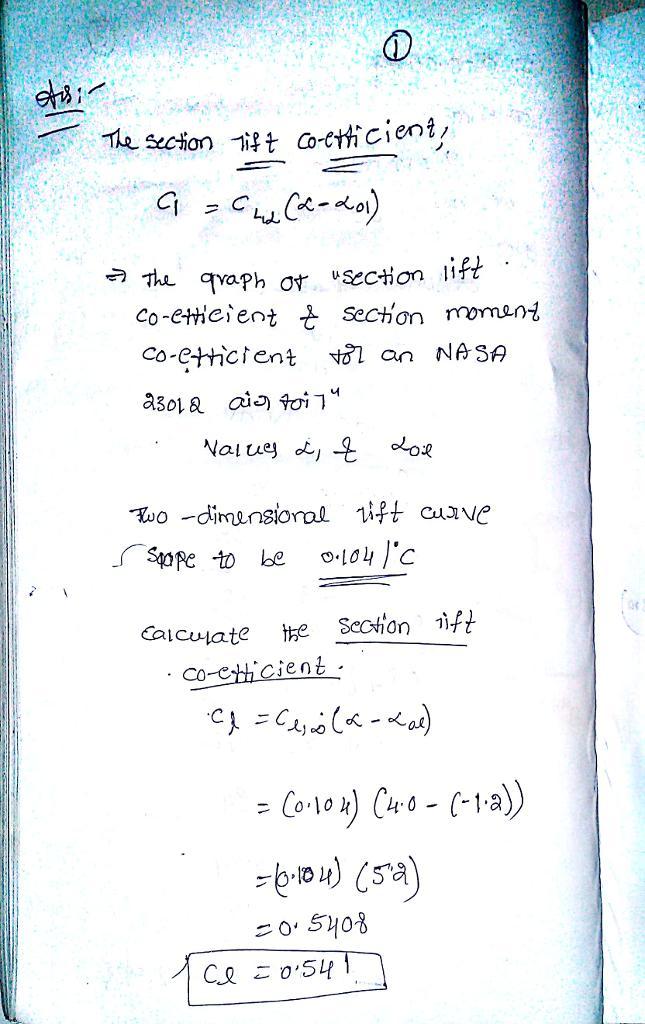 1
Ans:-
The section lift co-efficient,
Cl = Cl,α (α-α0l)
⇒ The graph of "section lift
co-efficient & section moment
co-efficient for an NASA
23012 air foil"
Values α, & α0l
Two-dimensional lift curve
slope to be 0.104/°C
calculate the section lift
co-efficient.
Cl = Cl,α (α-α0l)
= (0.104) (4.0 - (-1.2))
= (0.104) (5.2)
= 0.5408
Cl = 0.541